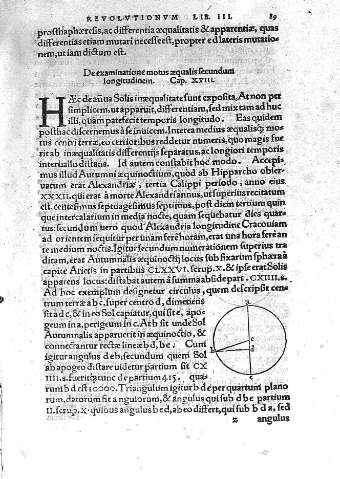 REVOLUTIONVM LIB. III. 89
prosthaphæresc, ac differentia æqualitatis & apparentiæ, quas
differentias etiam mutari necesse est, propter ed lateris mutatio-
nem, ut iam dictum est.
De examinatione motus æqualis secundum
longitudinem. Cap. XVIII.
HÆc de annua Solis inæqualitate sunt exposita, At non per
simplicem, ut apparuit, differentiam, sed mixtam ad huc
illi, quam patefecit temporis longitudo. Eas quidem
posthac discernemus à se inuicem. Interea medius æqualisq; mo
tus centri terræ, eo certioribus reddetur numeris, quo magis fue
rit ab inæqualitatis differentijs separatus, ac longiori temporis
interuallo distans. Id autem constabit hoc modo. Accepi-
mus illud Autumni æquinoctium, quod ab Hipparcho obser
uatum erat Alexandriæ, tertia Calippi periodo, anno eius
XXXII. qui erat à morte Alexandri annus, ut superius recitatum
est, centesimus septuagesimus septimus, post diem tertium quin
que intercalarium in media nocte, quam sequebatur dies quar-
tus: secundum uero quod Alexandria longitudine Cracouiam
ad orientem sequitur per unam fere horam, erat una hora ferme
te medium noctis. Igitur secundum numerationem superius tra
ditam, erat Autumnalis æquinoctij locus sub fixarum sphæra à
capite Arietis in partibus CLXXVI. scrup. X. & ipse erat Solis
apparens locus: distabat autem à summa abside part. CXIIII. s.
Ad hoc exemplum designetur circulus, quem descripsit cen-
trum terræ a b c. super centro d, dimetiens
sit a d c, & in eo Sol capiatur, qui sit e, apo-
geum in a, perigeum in c. At b sit unde Sol
Autumnalis apparuerit in æquinoctio, &
connectantur rectæ lineæ b d, b e. Cum
igitur angulus d e b, secundum quem Sol
ab apogeo distare uidetur partium sit CX
IIII. s. fueritq́; tunc d e partium 415. qua-
rum b d est 10000. Triangulum igitur b d e per quartum plano
rum, datorum fit angulorum, & angulus qui sub d b e partium
II. scrup. X. quibus angulus b e d, ab eo differt, qui sub b d a, sed
z angulus
a
e
d
b
c